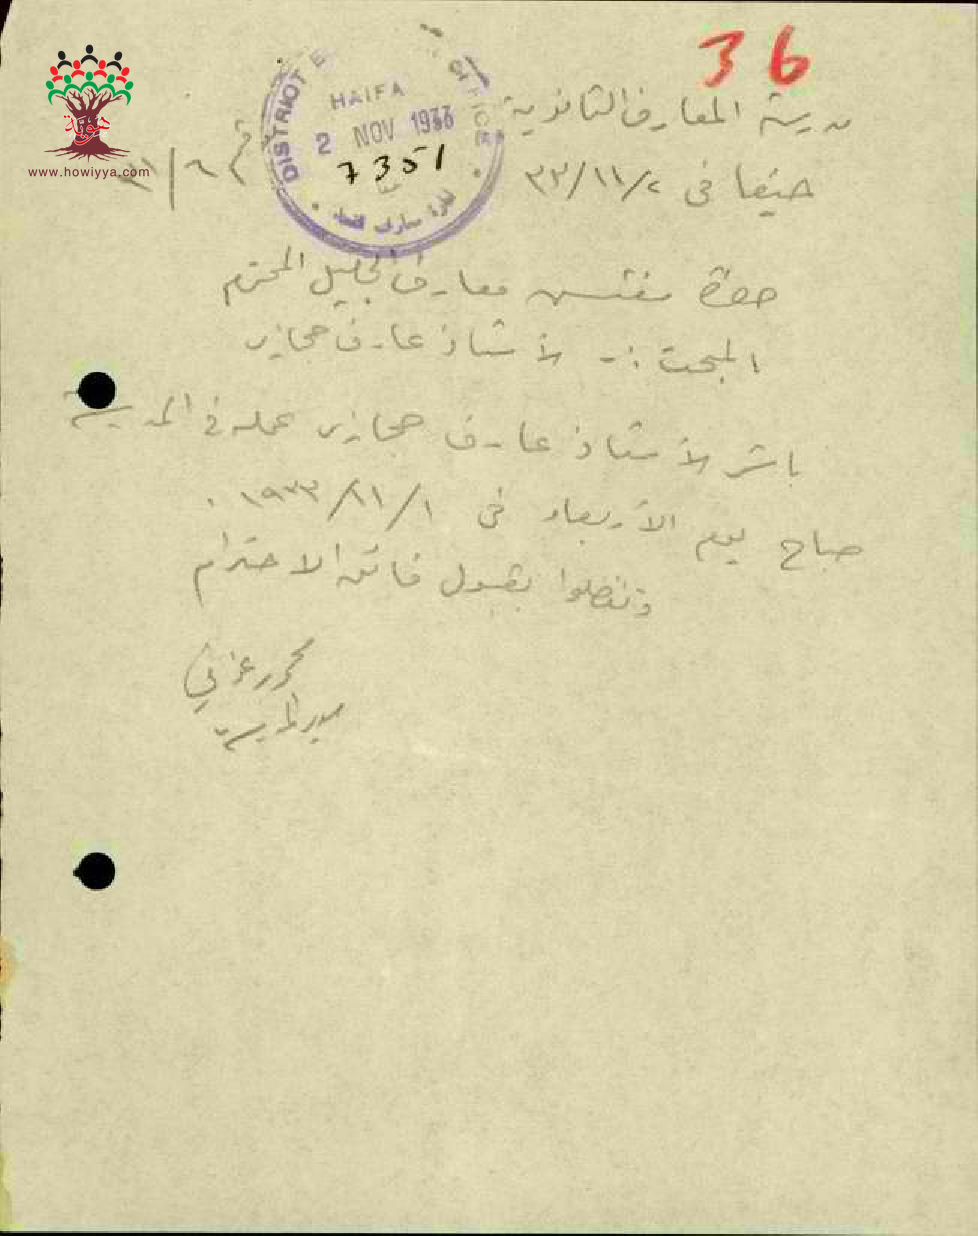 36
www.howiyya.com
DISTRICT E
OFFICE
HAIFA
2 NOV 1933
7351
مدرسة المعارف الثانوية
حيفا في ٢/١١/٣٣
حضرة مفتش معارف الجليل المحترم
المبحث :- الأستاذ عارف حجازي
باشر الأستاذ عارف حجازي عمله في المدرسة
صباح يوم الأربعاء في ١/١١/١٩٣٣ .
وتفضلوا بقبول فائق الاحترام
مدير المدرسة